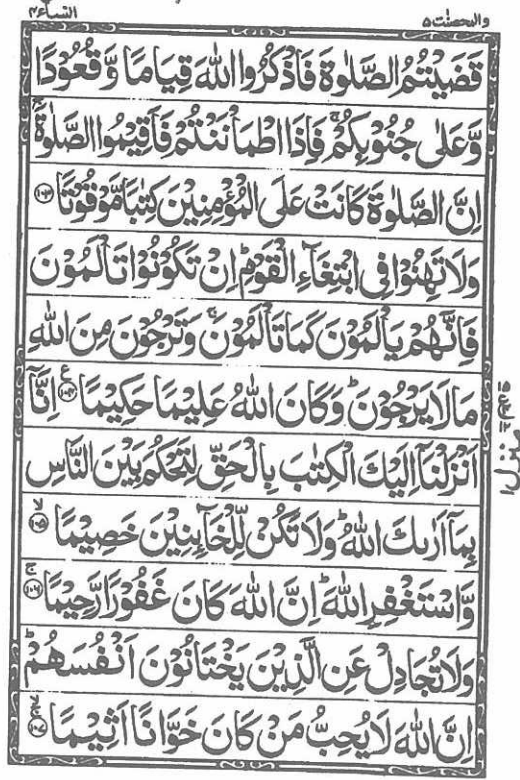 والمحصنت ۵ النسآء ۴
قَضَيْتُمُ الصَّلٰوةَ فَاذْكُرُوا اللّٰهَ قِيَامًا وَّقُعُوْدًا
وَّعَلٰى جُنُوْبِكُمْ ۚ فَاِذَا اطْمَاْنَنْتُمْ فَاَقِيْمُوا الصَّلٰوةَ ۚ
اِنَّ الصَّلٰوةَ كَانَتْ عَلَى الْمُؤْمِنِيْنَ كِتٰبًا مَّوْقُوْتًا ﴿۱۰۳﴾
وَلَا تَهِنُوْا فِى ابْتِغَآءِ الْقَوْمِ ؕ اِنْ تَكُوْنُوْا تَاْلَمُوْنَ
فَاِنَّهُمْ يَاْلَمُوْنَ كَمَا تَاْلَمُوْنَ ۚ وَتَرْجُوْنَ مِنَ اللّٰهِ
مَا لَا يَرْجُوْنَ ؕ وَكَانَ اللّٰهُ عَلِيْمًا حَكِيْمًا ﴿۱۰۴﴾ ع اِنَّاۤ
اَنْزَلْنَاۤ اِلَيْكَ الْكِتٰبَ بِالْحَقِّ لِتَحْكُمَ بَيْنَ النَّاسِ
بِمَاۤ اَرٰىكَ اللّٰهُ ؕ وَلَا تَكُنْ لِّلْخَآىِٕنِيْنَ خَصِيْمًا ﴿۱۰۵﴾ ۙ
وَّاسْتَغْفِرِ اللّٰهَ ؕ اِنَّ اللّٰهَ كَانَ غَفُوْرًا رَّحِيْمًا ﴿۱۰۶﴾ ۚ
وَلَا تُجَادِلْ عَنِ الَّذِيْنَ يَخْتَانُوْنَ اَنْفُسَهُمْ ؕ
اِنَّ اللّٰهَ لَا يُحِبُّ مَنْ كَانَ خَوَّانًا اَثِيْمًا ﴿۱۰۷﴾
منزل ۱